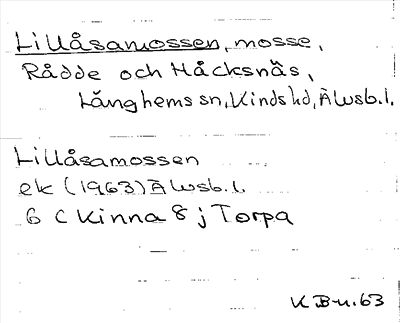 Lillåsamossen, mosse,
Rådde och Håcksnäs,
Långhems sn, Kinds hd, Älvsb.l.
Lillåsamossen
ek (1963) Älvsb.l.
6 C Kinna 8 j Torpa
K Br. 63